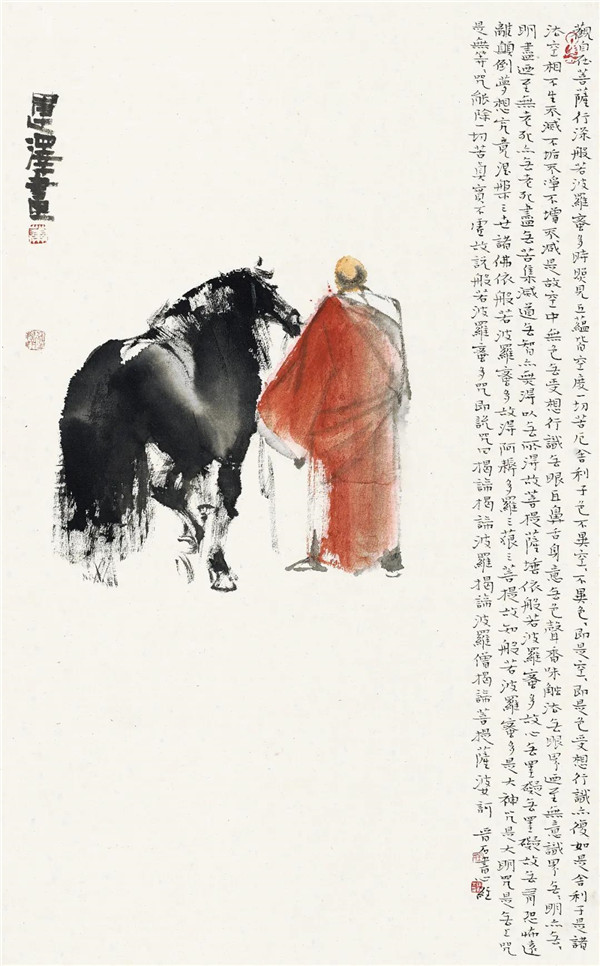 觀自在菩薩行深般若波羅蜜多時照見五蘊皆空度一切苦厄舍利子色不異空、不異色、即是空、即是色受想行識亦復如是舍利子是諸
法空相不生不滅不垢不淨不增不減是故空中無色无受想行識无眼耳鼻舌身意无色聲香味觸法无眼界迺至無意識界无、明亦无、
明盡迺至無老死亦无老死盡无苦集滅道无智亦無得以无所得故菩提薩埵依般若波羅蜜多故心无罣礙无罣礙故无有恐怖遠
離顛倒夢想究竟涅槃三世諸佛依般若波羅蜜多故得阿耨多羅三藐三菩提故知般若波羅蜜多是大神咒是大明咒是无上咒
是無等、咒能除一切苦真實不虛故說般若波羅蜜多咒即說咒曰揭諦揭諦波羅揭諦波羅僧揭諦菩提薩婆訶 晉石書心經
澤畫